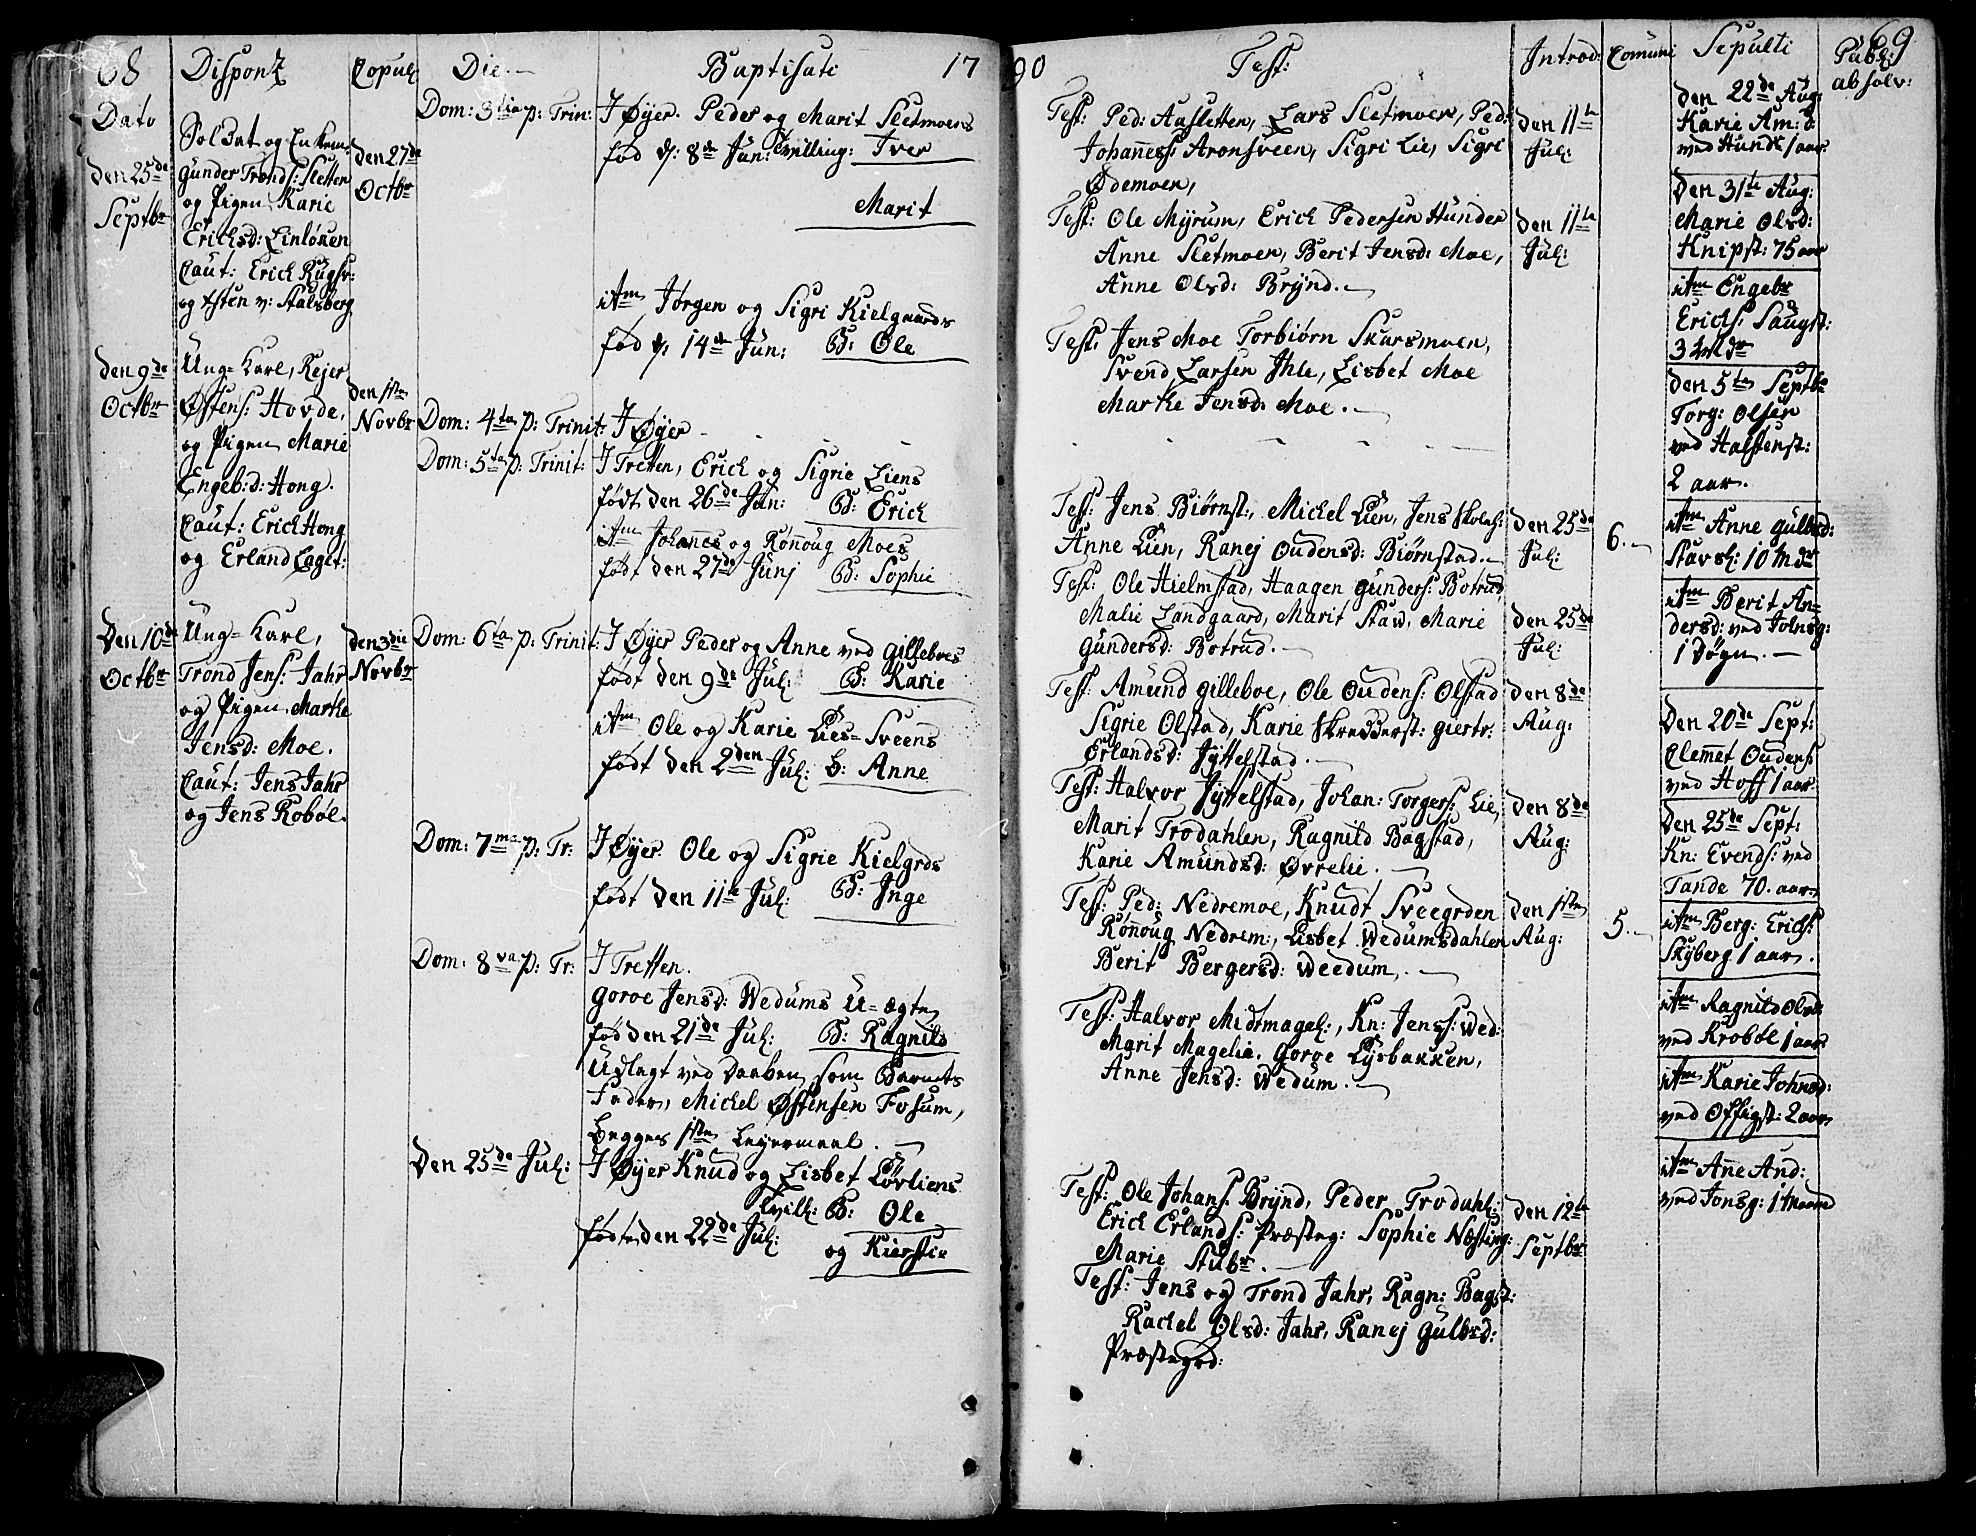 68
Disponst
Copul
Die
Baptisati
17
Dato
den 25de
Septbr
Soldat og Enkem:
Gunder Tronds: Sletten
og Pigen Karie
Erichsd: Linløken
Caut: Erich Rugsv:
og Østen v: Stalsberg
den 27de
Octbr
den 9de
Octbr
Ung=Karl, Rejer
Østens: Hovde,
og Pigen Marie
Engeb:d: Hong.
Caut: Erich Hong
og Erland Laget:
den 1ste
Novbr
Den 10de
Octbr
Ung=Karl,
Trond Jens: Jahr
og Pigen Marthe
Jensd: Moe.
Caut: Jens Jahr
og Jens Robøl.
den 3die
Novbr
Dom: 3tia p: Trin:
I Øyer. Peder og Marit Sletmoens
fød d: 8de Jun: Tvilling: Iver
Marit
itm Jørgen og Sigri Kielgaards
fød d: 14de Jun: B: Ole
Dom: 4ta p: Trinit:
I Øyer
Dom: 5ta p: Trinit:
I Tretten, Erich og Sigrie Liens
født den 26de Jun: B: Erich
itm Johanes og Rønnoug Moes
født den 27de Junj B: Sophie
Dom: 6ta p: Trinit:
I Øyer Peder og Anne ved Gilleboes
født den 9de Jul: B: Karie
itm Ole og Karie Lies=Sveens
født den 2den Jul: B: Anne
Dom: 7ma p: Tr:
I Øyer. Ole og Sigrie Kielgrds
født den 11te Jul: B: Inge
Dom: 8va p: Tr:
I Tretten.
Goroe Jensd: Wedums U=ægte
fød den 21de Jul: B: Ragnild
Udlagt ved Daaben som Barnets
Fader, Michel Østensen Fosum,
begges 1ste Leyermaal.
Den 25de Jul:
I Øyer Knud og Lisbet Løvliens
Tvill: B: Ole
fødte den 22de Jul:
og Kierstie
90
Test:
Introd:
Comuni
Sepulti
Publ:
absolv:
69
Test: Ped: Aasletten, Lars Sletmoen, Ped:
Johaness: Aronsveen, Sigri Lie, Sigri
Ødemoen,
den 11te
Jul:
Test: Ole Myrum, Erich Pedersen Hunder
Anne Sletmoen, Berit Jensd: Moe,
Anne Olsd: Brynd.
den 11te
Jul:
Test: Jens Moe Torbiørn Skarsmoen,
Svend Larsen Ihle, Lisbet Moe
Marthe Jensd: Moe.
Test: Jens Biørnst:, Michel Lien, Jens Skoleh:
Anne Lien, Ranej Oudensd: Biørnstad.
den 25de
Jul:
6.
Test: Ole Hielmstad, Haagen Gunders: Botrud,
Malie Landgaard, Marit Staw, Marie
Gundersd: Botrud.
den 25de
Jul:
Test: Amund Gilleboe, Ole Oudens: Olstad
Sigrie Olstad, Karie Skredderst: Giertr:
Erlandsd: Jyttelstad.
den 8de
Aug:
Test: Halvor Jyttelstad, Johan: Torgers: Lie,
Marit Trodahlen, Ragnild Bagstad,
Karie Amundsd: Øvrelie.
den 8de
Aug:
Test: Ped: Nedremoe, Knudt Sveegrden
Rønnoug Nedrem:, Lisbet Wedumsdahlen
Berit Bergersd: Weedum,
den 1ste
Aug:
5.
Test: Halvor Midtmagel:, Kn: Jens: Wed:
Marit Magelie. Goroe Lysbakken,
Anne Jensd: Wedum.
Test: Ole Johans: Brynd, Peder Trodahl:
Erich Erlands: Præsteg: Sophie Næsting:
Marie Stubr.
den 12te
Septbr
Test: Jens og Trond Jahr, Ragn: Bagst:
Rachel Olsd: Jahr, Ranej Gulbrd:
Præstegrd:
den 22de Aug:
Karie Am:d:
ved Hund: 1 aar
den 31te Aug:
Marie Olsd:
Knipst: 75 aar
itm Engebr
Erichs: Saugst:
3 Mdr
den 5te Septbr
Torg: Olsen
ved Halstenst:
2 aar.
itm Anne Gulbrd:
Stavsl: 10 Mdr
itm Berit An=
dersd: ved Jolnsg:
1 døgn.
Den 20de Sept:
Clemet Oudens:
ved Hoff 1 aar
Den 25de Sept:
Kn: Evends: ved
Tande 70. aar
itm Berg: Erichs:
Skyberg 1 aar.
itm Ragnild Olsd:
ved Krobøl 1 aar
itm Karie Johnsd:
ved Offigst: 2 aar
itm Anne And:
ved Jonsg: 1 Maaned